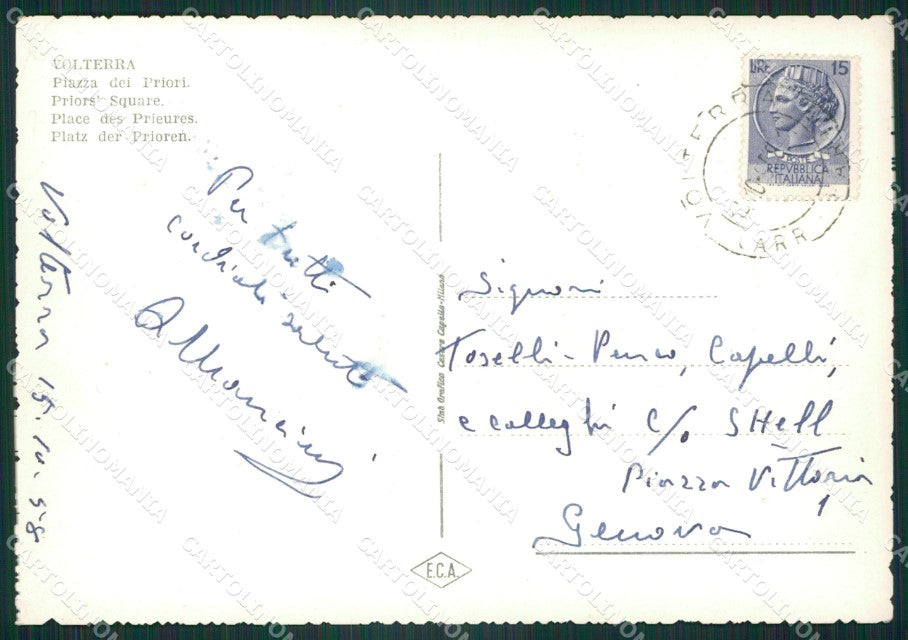 VOLTERRA
Piazza dei Priori.
Priors' Square.
Place des Prieures.
Platz der Prioren.
LIRE 15
POSTE
REPVBBLICA
ITALIANA
VOLTERRA
ARR
Per tutti
cordiali saluti
Volterra 15.10.58
Stab Grafico Cesare Capello-Milano
E.C.A.
Signori
Toselli-Penco, Capelli,
e colleghi c/o SHell
Piazza Vittoria
1
Genova
CARTOLINOMANIA